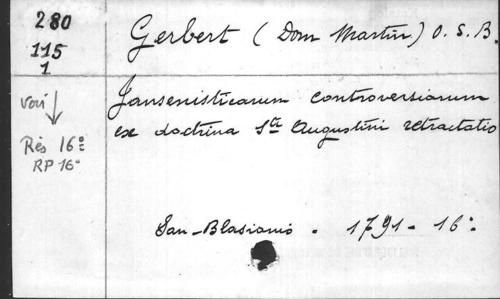 280
115
1
voir
Rés 16º
RP 16º
Gerbert (Dom Martin) O. S. B.
Jansenisticarum controversiarum
ex doctrina Sti Augustini retractatio
San-Blasianis . 1791 - 16º